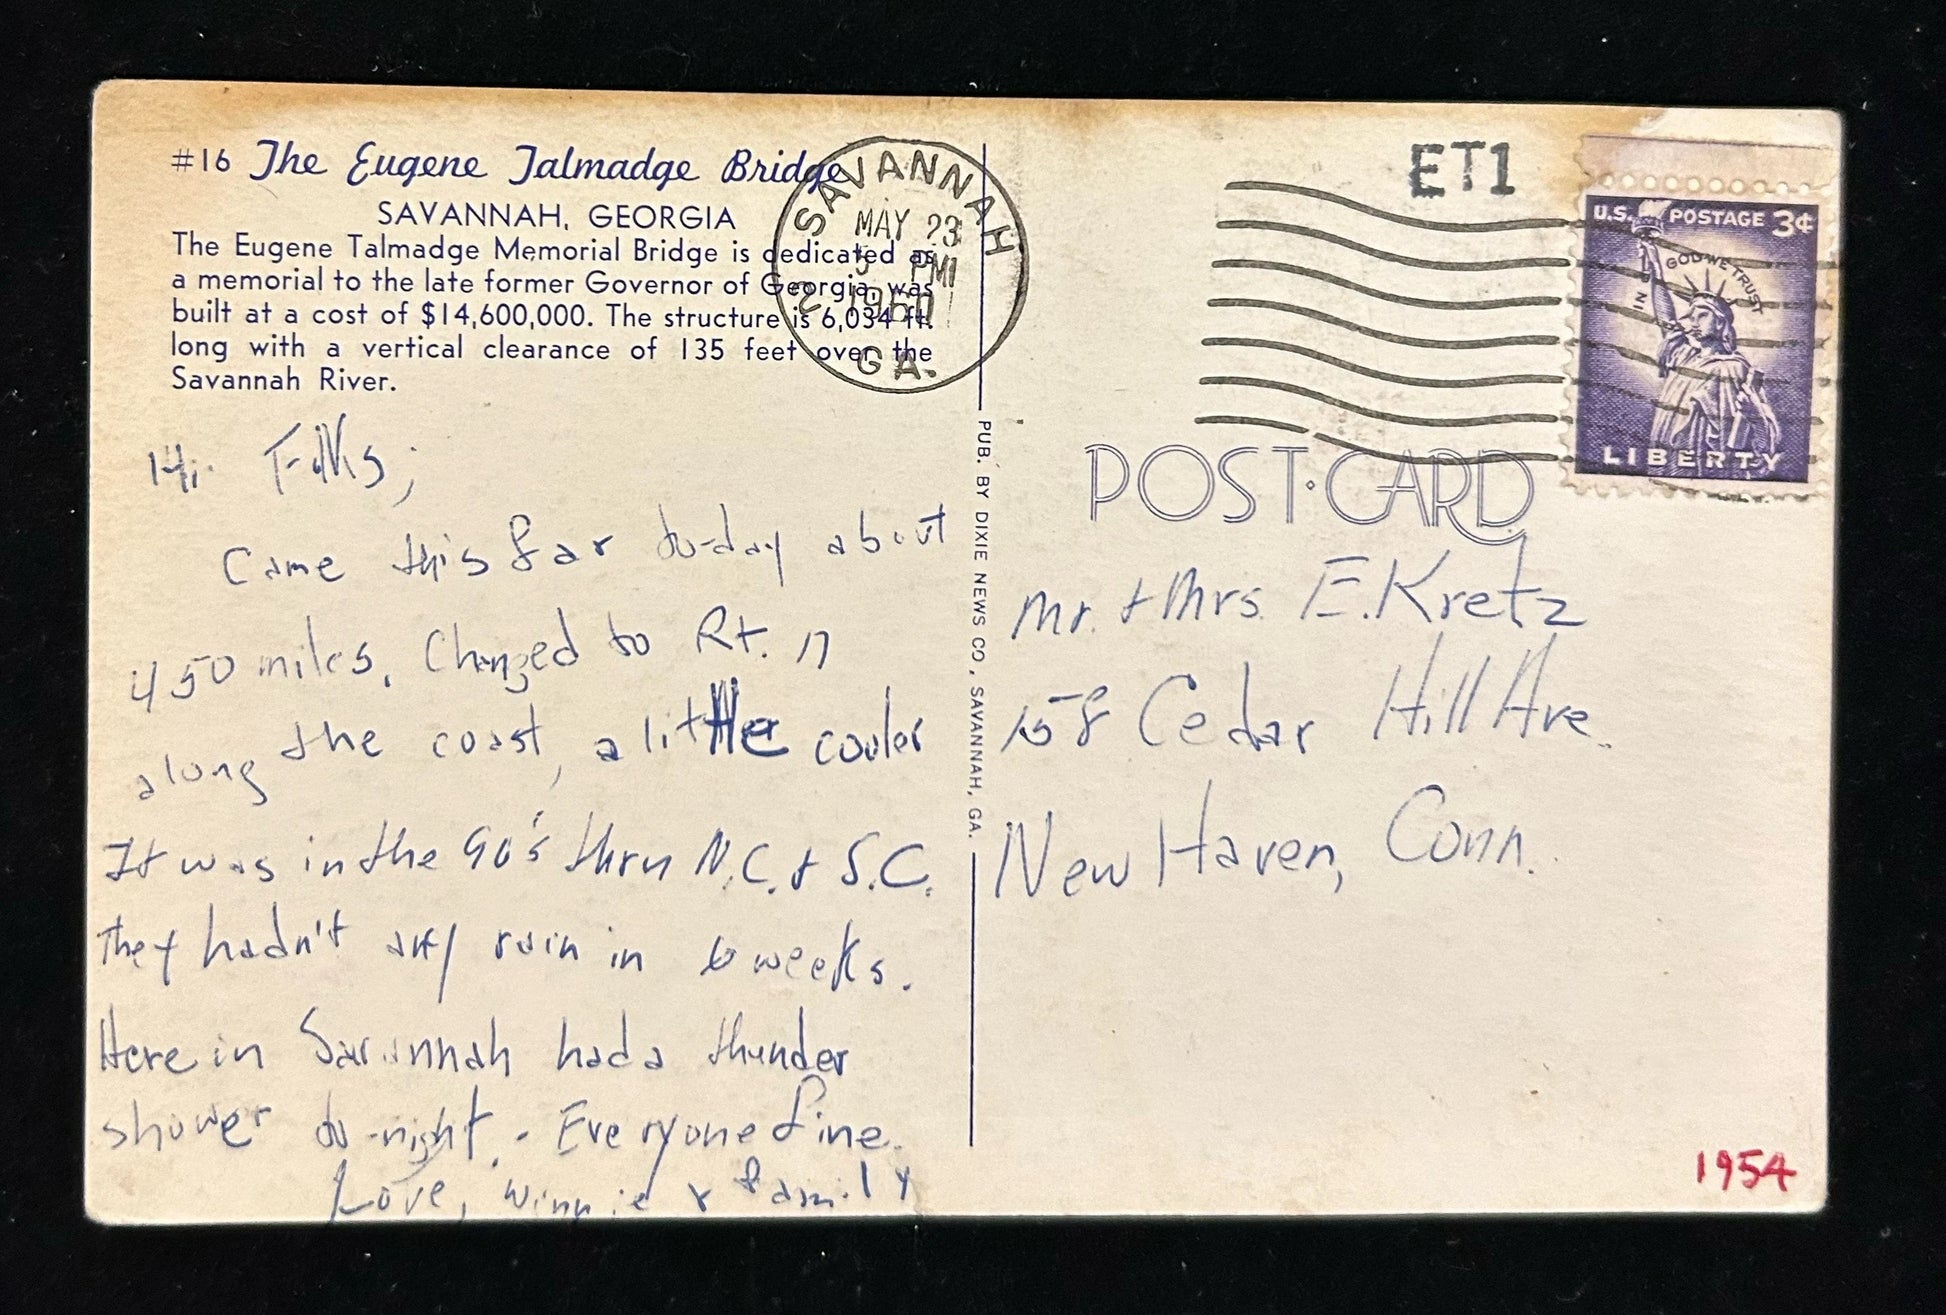 #16 The Eugene Talmadge Bridge
SAVANNAH, GEORGIA
The Eugene Talmadge Memorial Bridge is dedicated as
a memorial to the late former Governor of Georgia, was
built at a cost of $14,600,000. The structure is 6,034 ft.
long with a vertical clearance of 135 feet over the
Savannah River.
Hi Folks,
Came this far to-day about
450 miles. Changed to Rt. 17
along the coast, a little cooler
It was in the 90's thru N.C. & S.C.
They hadn't any rain in 6 weeks.
Here in Savannah had a thunder
shower to-night. - Everyone fine.
Love, Winnie & family
SAVANNAH
MAY 23
PM
2
GA.
PUB. BY DIXIE NEWS CO., SAVANNAH, GA.
ET1
U.S. POSTAGE 3¢
IN GOD WE TRUST
LIBERTY
POST CARD
Mr. & Mrs. E. Kretz
158 Cedar Hill Ave.
New Haven, Conn.
1954